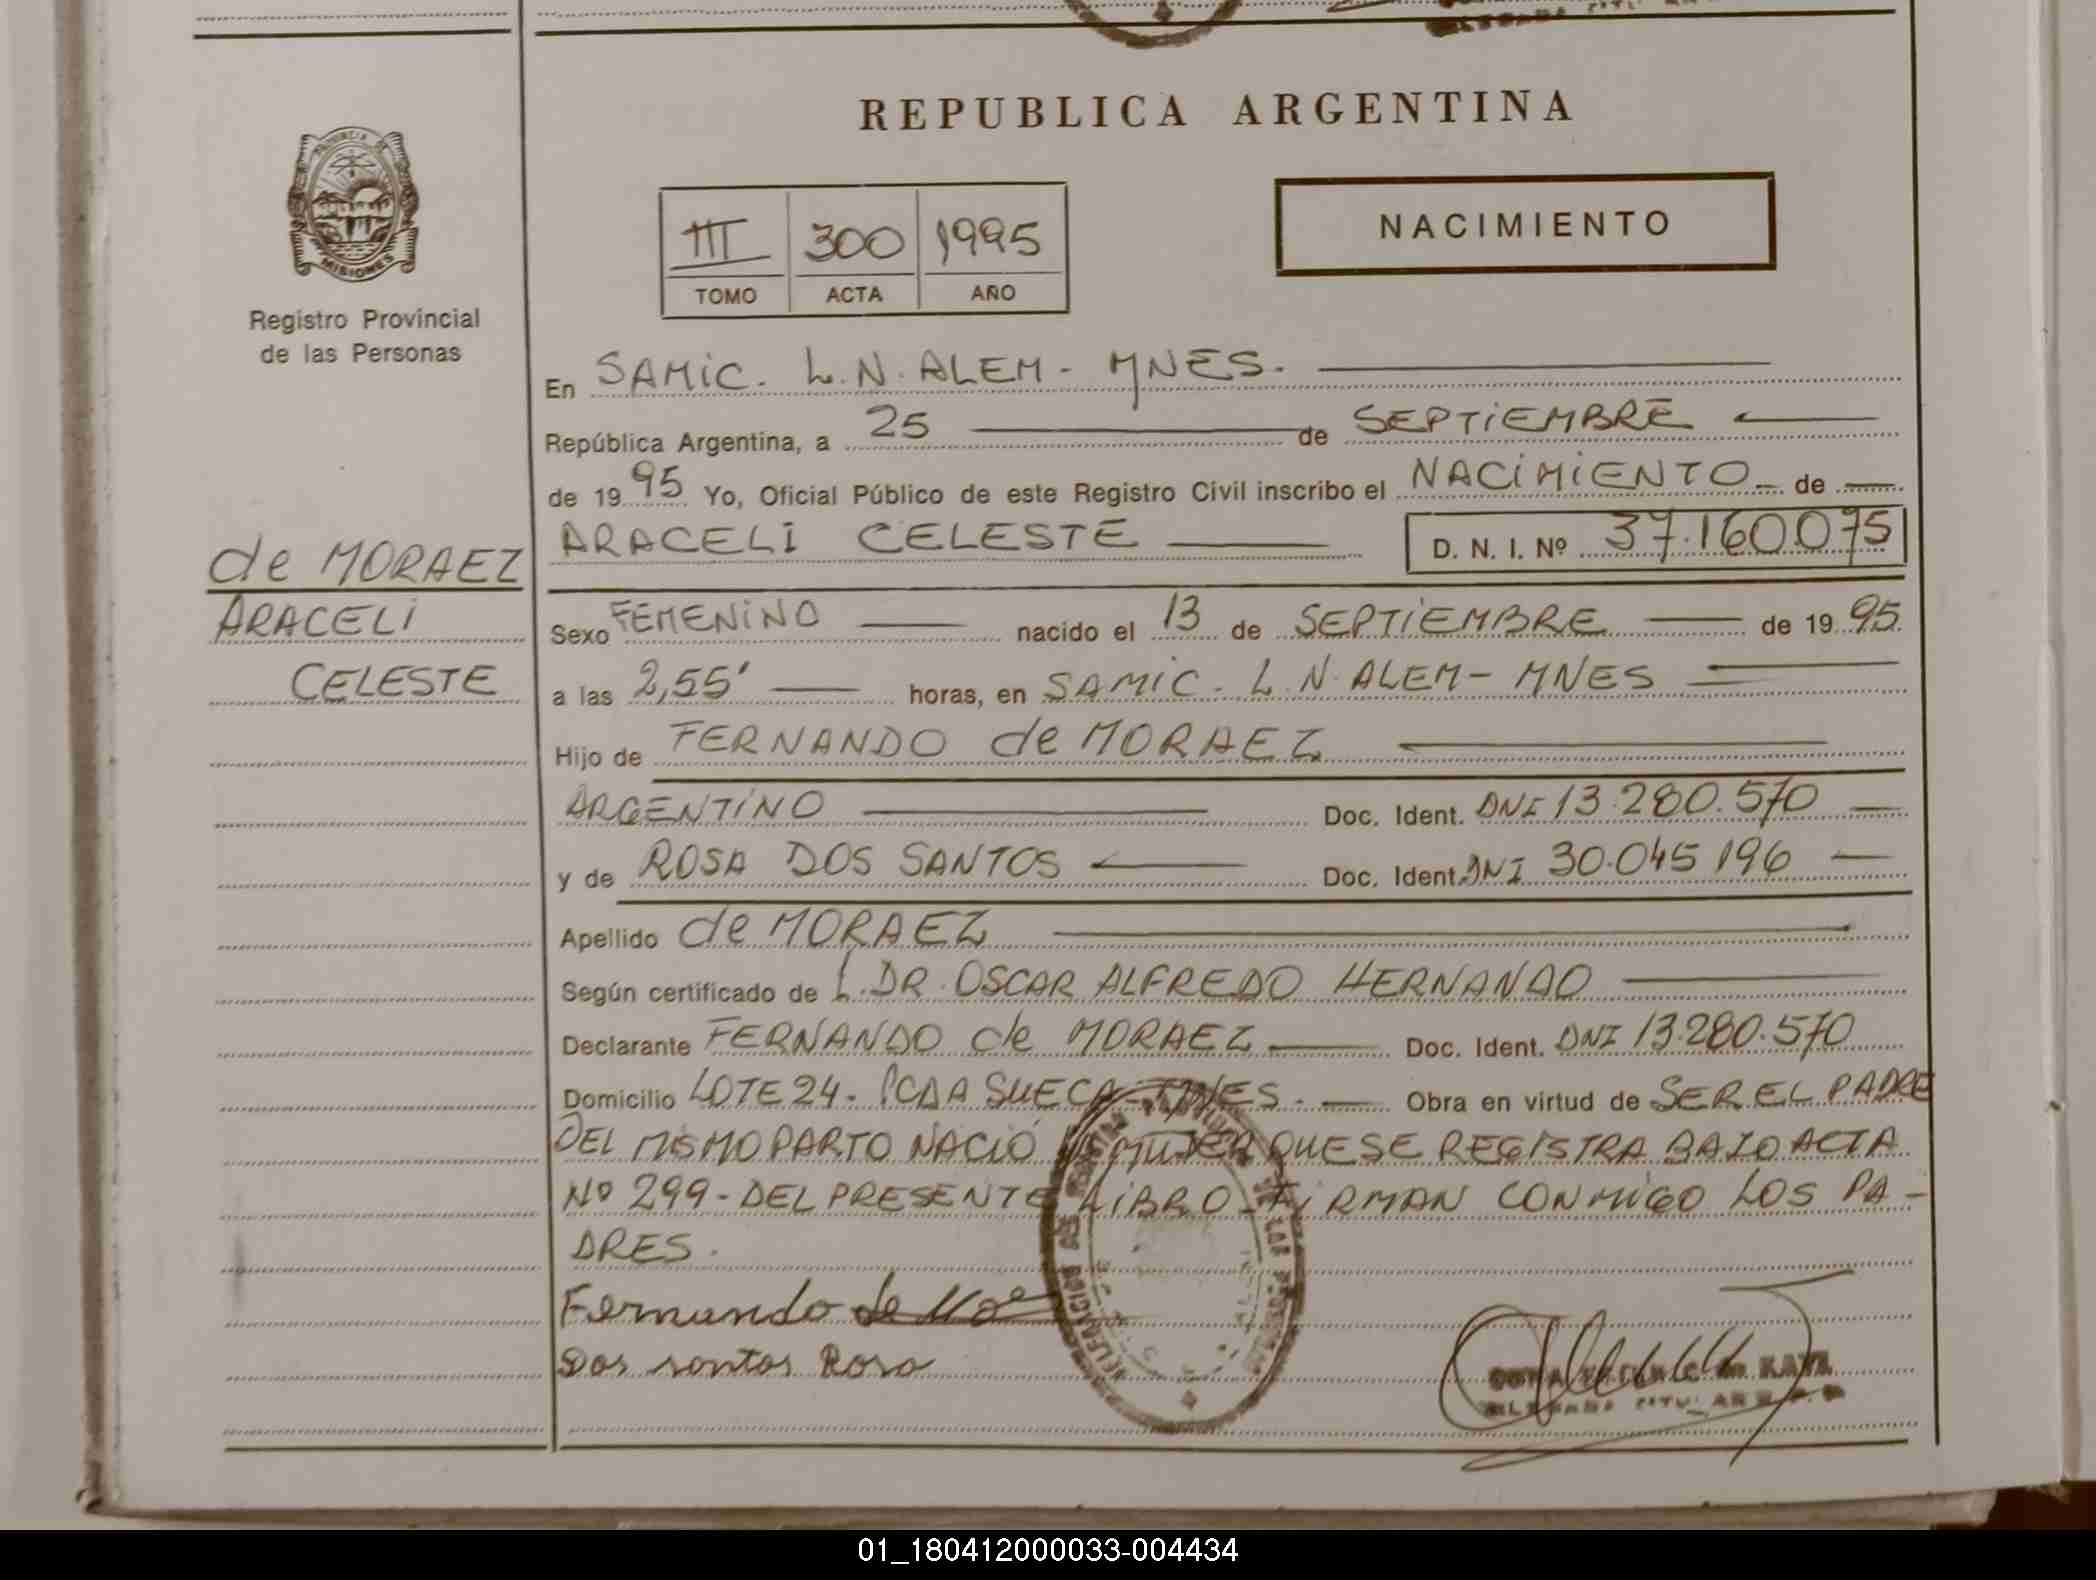 REPUBLICA ARGENTINA
PROVINCIA DE
MISIONES
Registro Provincial
de las Personas
III 300 1995
TOMO ACTA AÑO
NACIMIENTO
En SAMIC. L.N. ALEM - MNES.
República Argentina, a 25 de SEPTIEMBRE
de 1995 Yo, Oficial Público de este Registro Civil inscribo el NACIMIENTO de
ARACELI CELESTE D. N. I. Nº 37.160.075
de MORAEZ
ARACELI
CELESTE
Sexo FEMENINO nacido el 13 de SEPTIEMBRE de 1995
a las 2,55' horas, en SAMIC. L.N. ALEM - MNES
Hijo de FERNANDO de MORAEZ
ARGENTINO Doc. Ident. DNI 13.280.570
y de ROSA DOS SANTOS Doc. Ident. DNI 30.045 196
Apellido de MORAEZ
Según certificado de L. DR. OSCAR ALFREDO HERNANDO
Declarante FERNANDO de MORAEZ Doc. Ident. DNI 13.280.570
Domicilio LOTE 24. PCDA SUECA - MNES. Obra en virtud de SER EL PADRE
DEL MISMO PARTO NACIÓ MUJER QUE SE REGISTRA BAJO ACTA
Nº 299 - DEL PRESENTE LIBRO - FIRMAN CONMIGO LOS PA-
DRES.
Fernando de
Dos santos Rosa
01_180412000033-004434